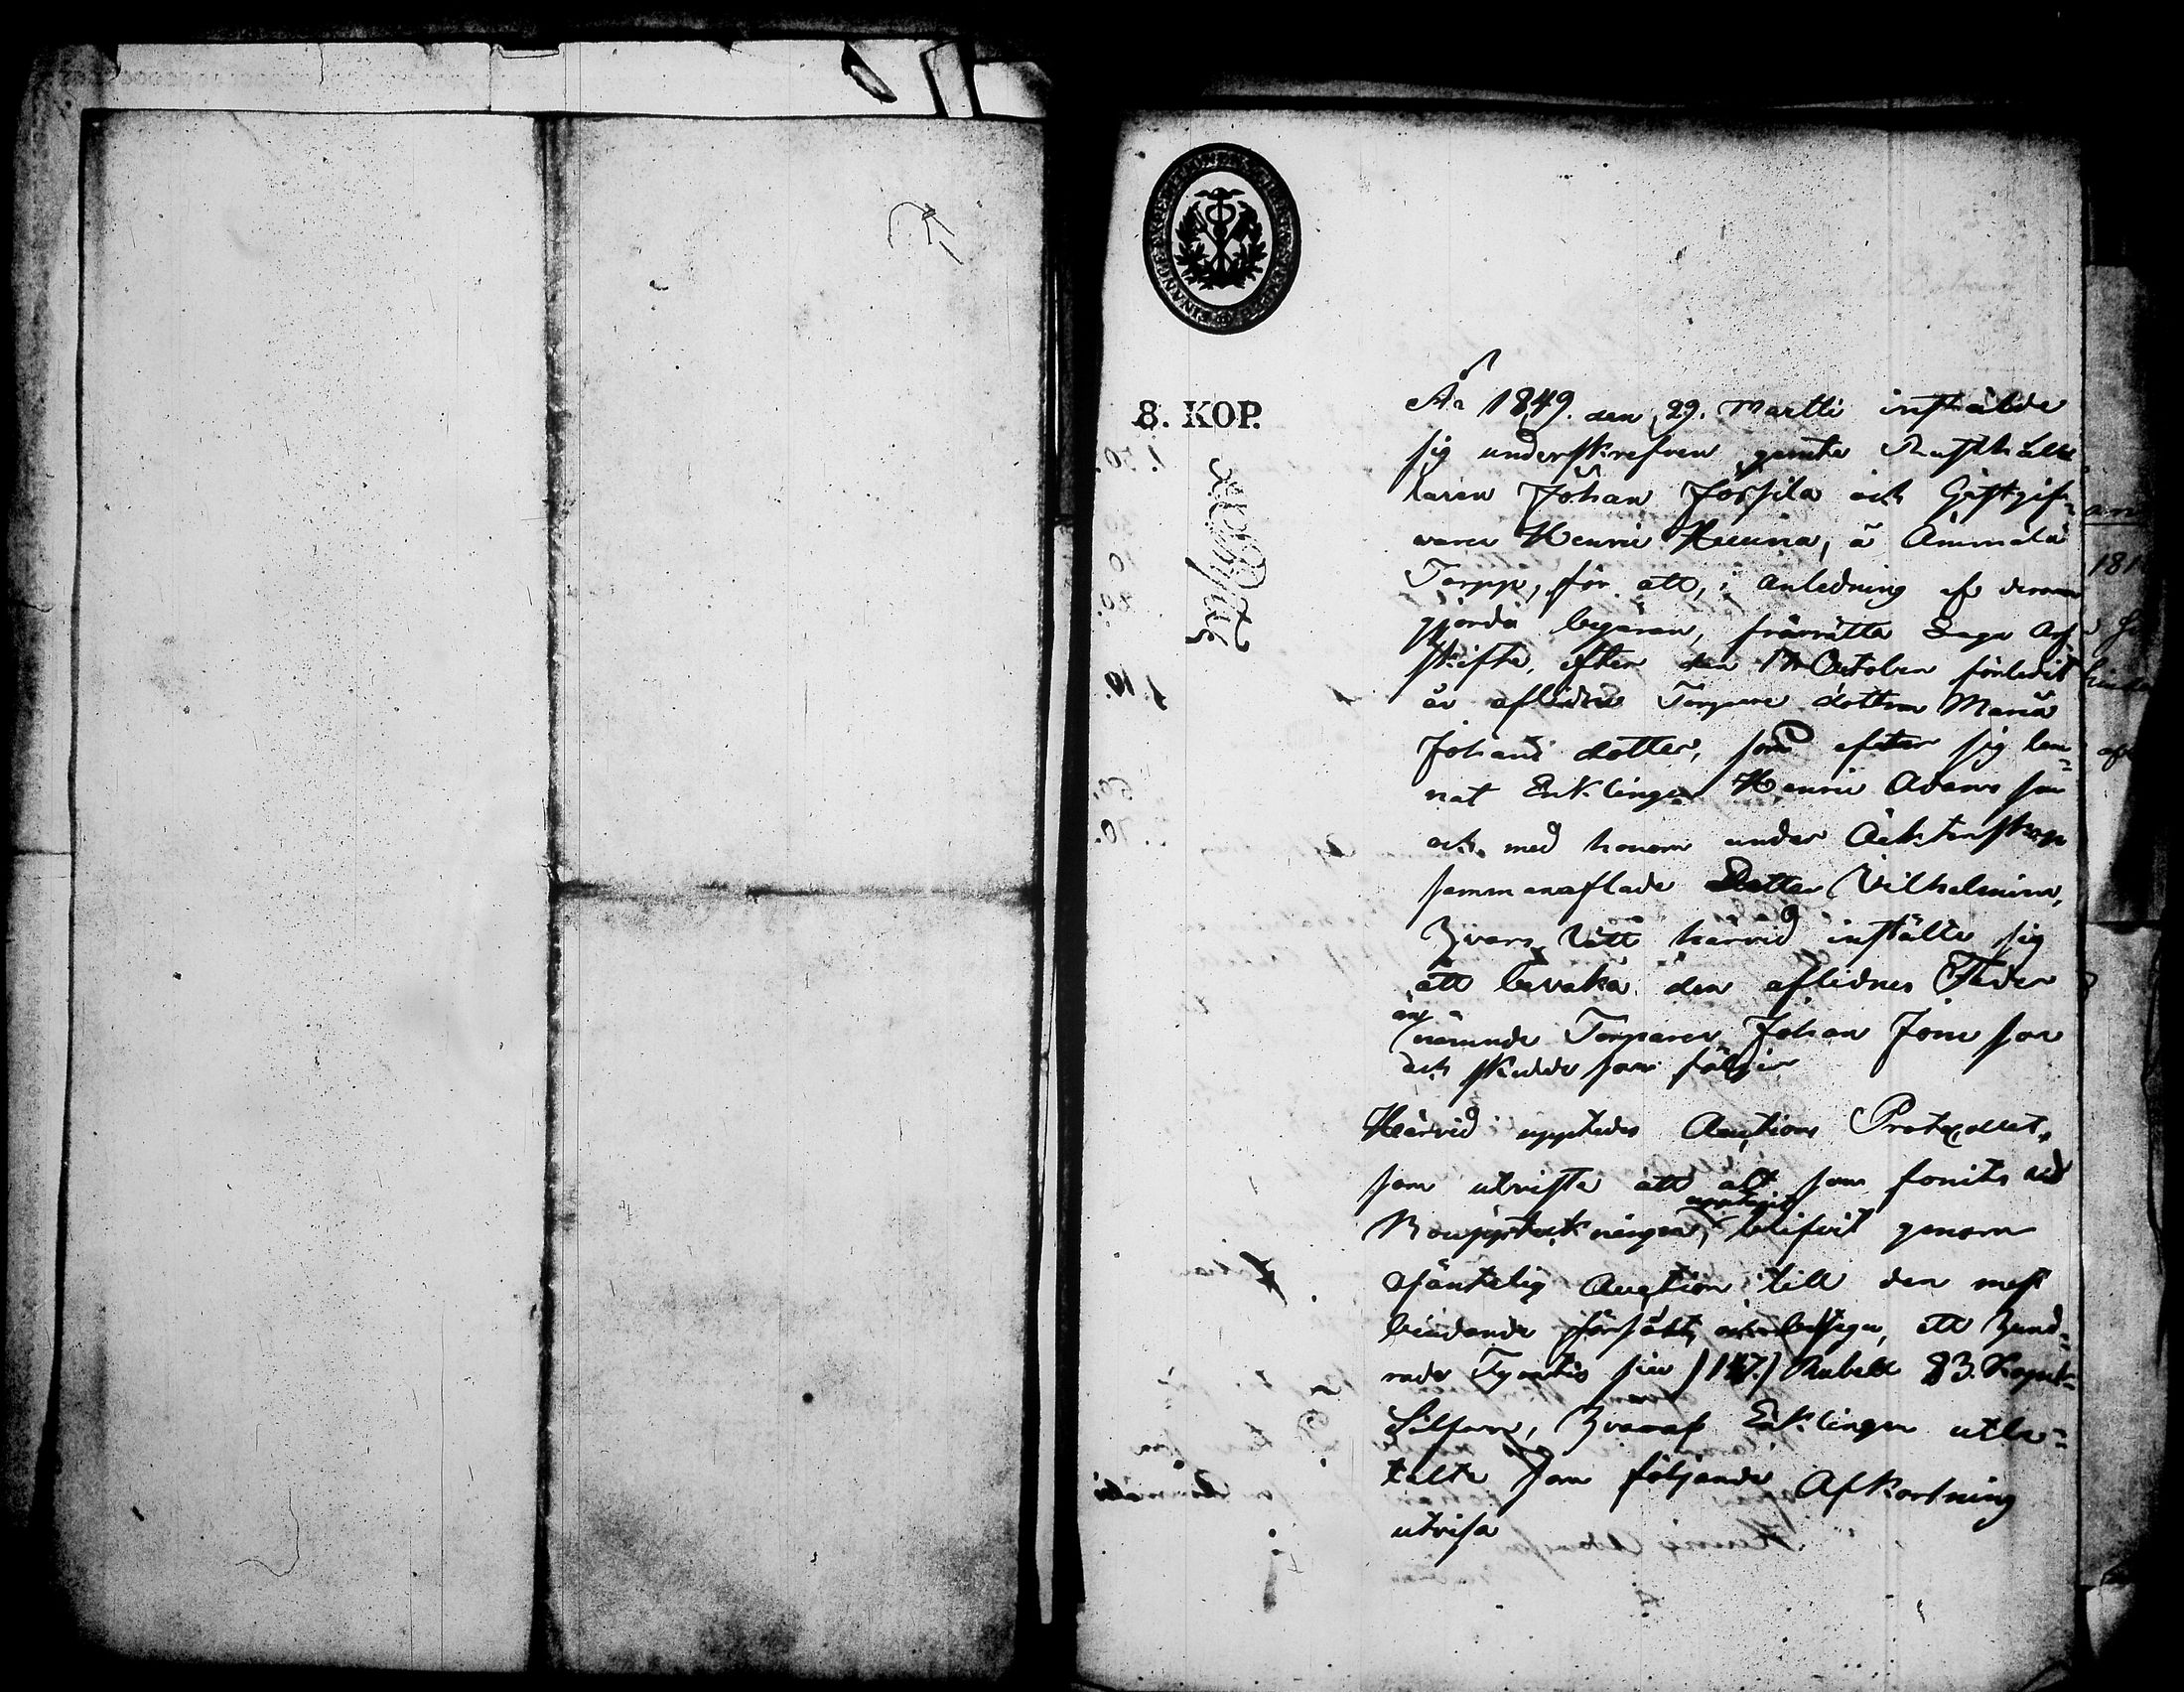 8. KOP.
Ao 1849. den 29. Martii instälde
sig underskrefven jemte Rusthålla
laren Johan Jossila och Gästgif-
varen Henric Heinna, å Ämmälä
Torpp, för att, i anledning af derom
gjorda begäran, förrätta Laga Arf
skifte, efter den 17 October förledit
år aflidne Torpare dottren Maria
Johans dotter, som efter sig lem-
nat Enklingen Henric Adams son
och med honom under Äcktenskap
sammanaflade Dotter Vilhelmina,
Hvars Rätt härvid instälte sig
att bevaka den aflidnes Fader
nämnde Torparen Johan Jöns son
och skedde som följer
Härvid uppteddes Auctions Protocollet,
som utviste att alt som fonits vid
Bouppteckningen, blifvit genom
öfäntelig Auction till den mest
biudande försåldt, att Hund-
rade Fyratio siu /147./ Rubell 83. Kopek
Silfver, Hvaraf Enklingen utbe-
talte som följande Afkortning
utvisa